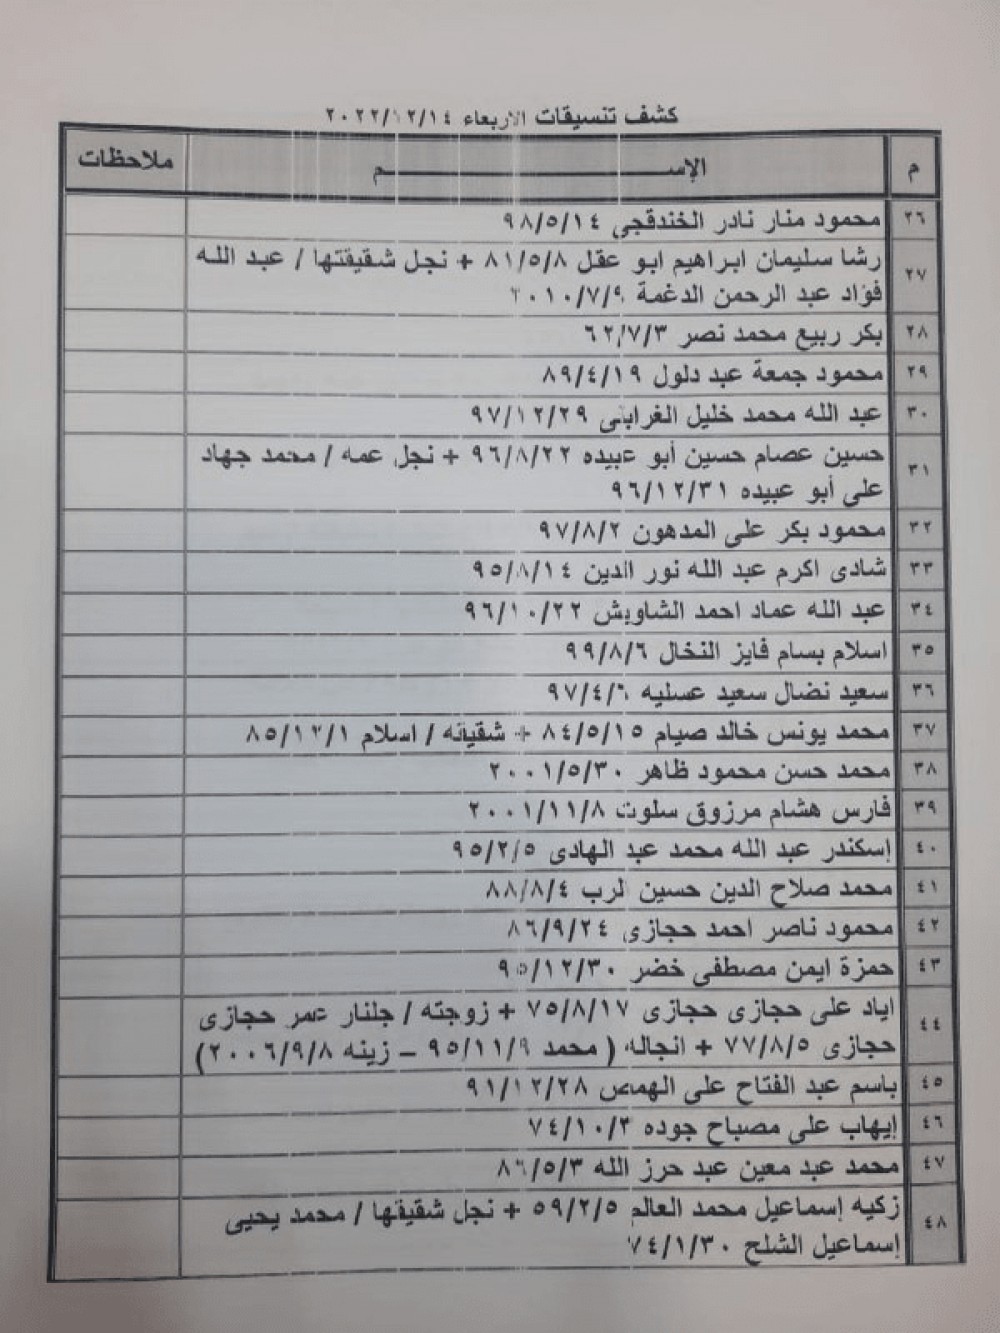 كشف تنسيقات الاربعاء ٢٠٢٢/١٢/١٤
م الإســـــــــم ملاحظات
٢٦ محمود منار نادر الخندقجى ٩٨/٥/١٤
٢٧ رشا سليمان ابراهيم ابو عقل ٨١/٥/٨ + نجل شقيقتها / عبد الله
فؤاد عبد الرحمن الدغمة ٢٠١٠/٧/٩
٢٨ بكر ربيع محمد نصر ٦٢/٧/٣
٢٩ محمود جمعة عبد دلول ٨٩/٤/١٩
٣٠ عبد الله محمد خليل الغرابلى ٩٧/١٢/٢٩
٣١ حسين عصام حسين أبو عبيده ٩٦/٨/٢٢ + نجل عمه / محمد جهاد
على أبو عبيده ٩٦/١٢/٣١
٣٢ محمود بكر على المدهون ٩٧/٨/٢
٣٣ شادى اكرم عبد الله نور الدين ٩٥/٨/١٤
٣٤ عبد الله عماد احمد الشاويش ٩٦/١٠/٢٢
٣٥ اسلام بسام فايز النخال ٩٩/٨/٦
٣٦ سعيد نضال سعيد عسليه ٩٧/٤/٦
٣٧ محمد يونس خالد صيام ٨٤/٥/١٥ + شقيقه / اسلام ٨٥/١٢/١
٣٨ محمد حسن محمود ظاهر ٢٠٠١/٥/٣٠
٣٩ فارس هشام مرزوق سلوت ٢٠٠١/١١/٨
٤٠ إسكندر عبد الله محمد عبد الهادى ٩٥/٢/٥
٤١ محمد صلاح الدين حسين ٨٨/٨/٤
٤٢ محمود ناصر احمد حجازى ٨٦/٩/٢٤
٤٣ حمزة ايمن مصطفى خضر ٩٥/١٢/٣٠
٤٤ اياد على حجازى حجازى ٧٥/٨/١٧ + زوجته / جلنار عمر حجازى
حجازى ٧٧/٨/٥ + انجاله ( محمد ٩٥/١١/٩ – زينه ٢٠٠٦/٩/٨)
٤٥ باسم عبد الفتاح على الهمص ٩١/١٢/٢٨
٤٦ إيهاب على مصباح جوده ٧٤/١٠/٣
٤٧ محمد عبد معين عبد حرز الله ٨٦/٥/٣
٤٨ زكيه إسماعيل محمد العالم ٥٩/٢/٥ + نجل شقيقها / محمد يحيى
إسماعيل الشلح ٧٤/١/٣٠